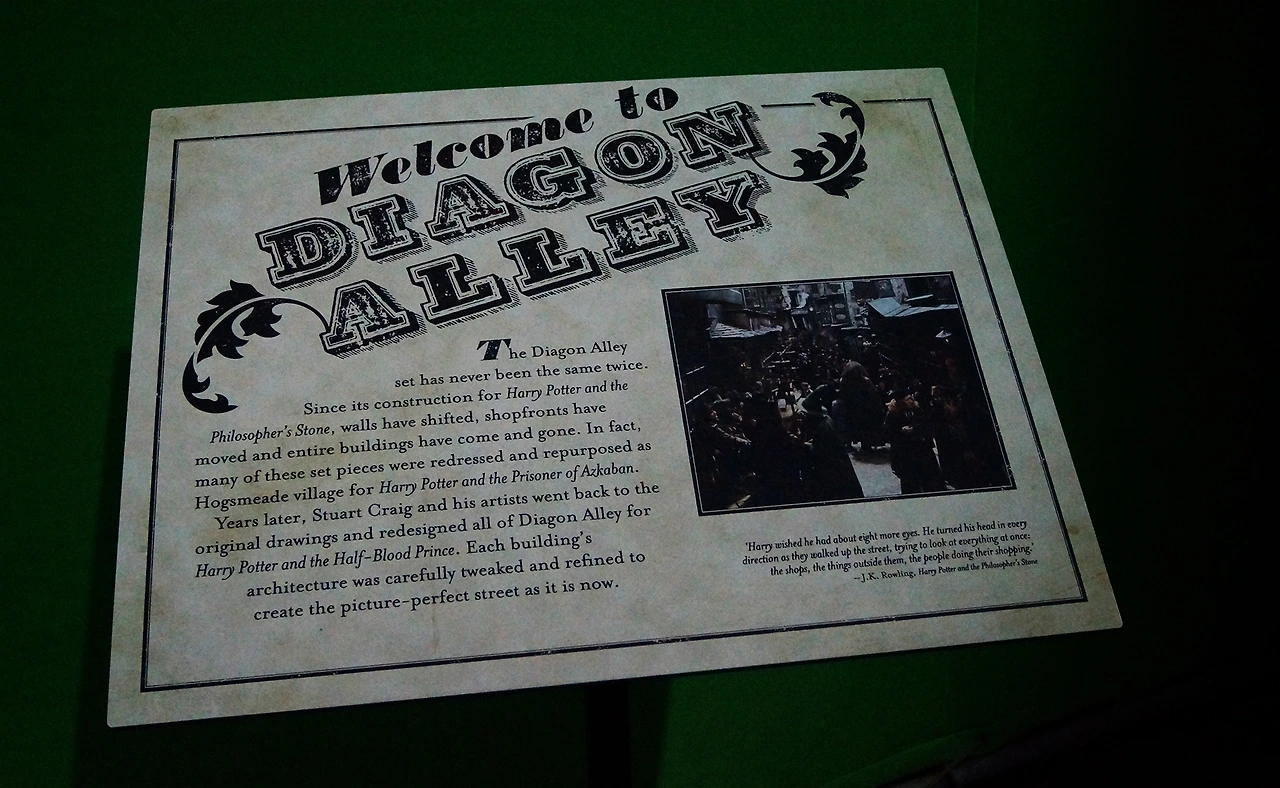 Welcome to
DIAGON
ALLEY
The Diagon Alley
set has never been the same twice.
Since its construction for Harry Potter and the
Philosopher's Stone, walls have shifted, shopfronts have
moved and entire buildings have come and gone. In fact,
many of these set pieces were redressed and repurposed as
Hogsmeade village for Harry Potter and the Prisoner of Azkaban.
Years later, Stuart Craig and his artists went back to the
original drawings and redesigned all of Diagon Alley for
Harry Potter and the Half-Blood Prince. Each building's
architecture was carefully tweaked and refined to
create the picture-perfect street as it is now.
'Harry wished he had about eight more eyes. He turned his head in every
direction as they walked up the street, trying to look at everything at once:
the shops, the things outside them, the people doing their shopping.'
–J.K. Rowling, Harry Potter and the Philosopher's Stone